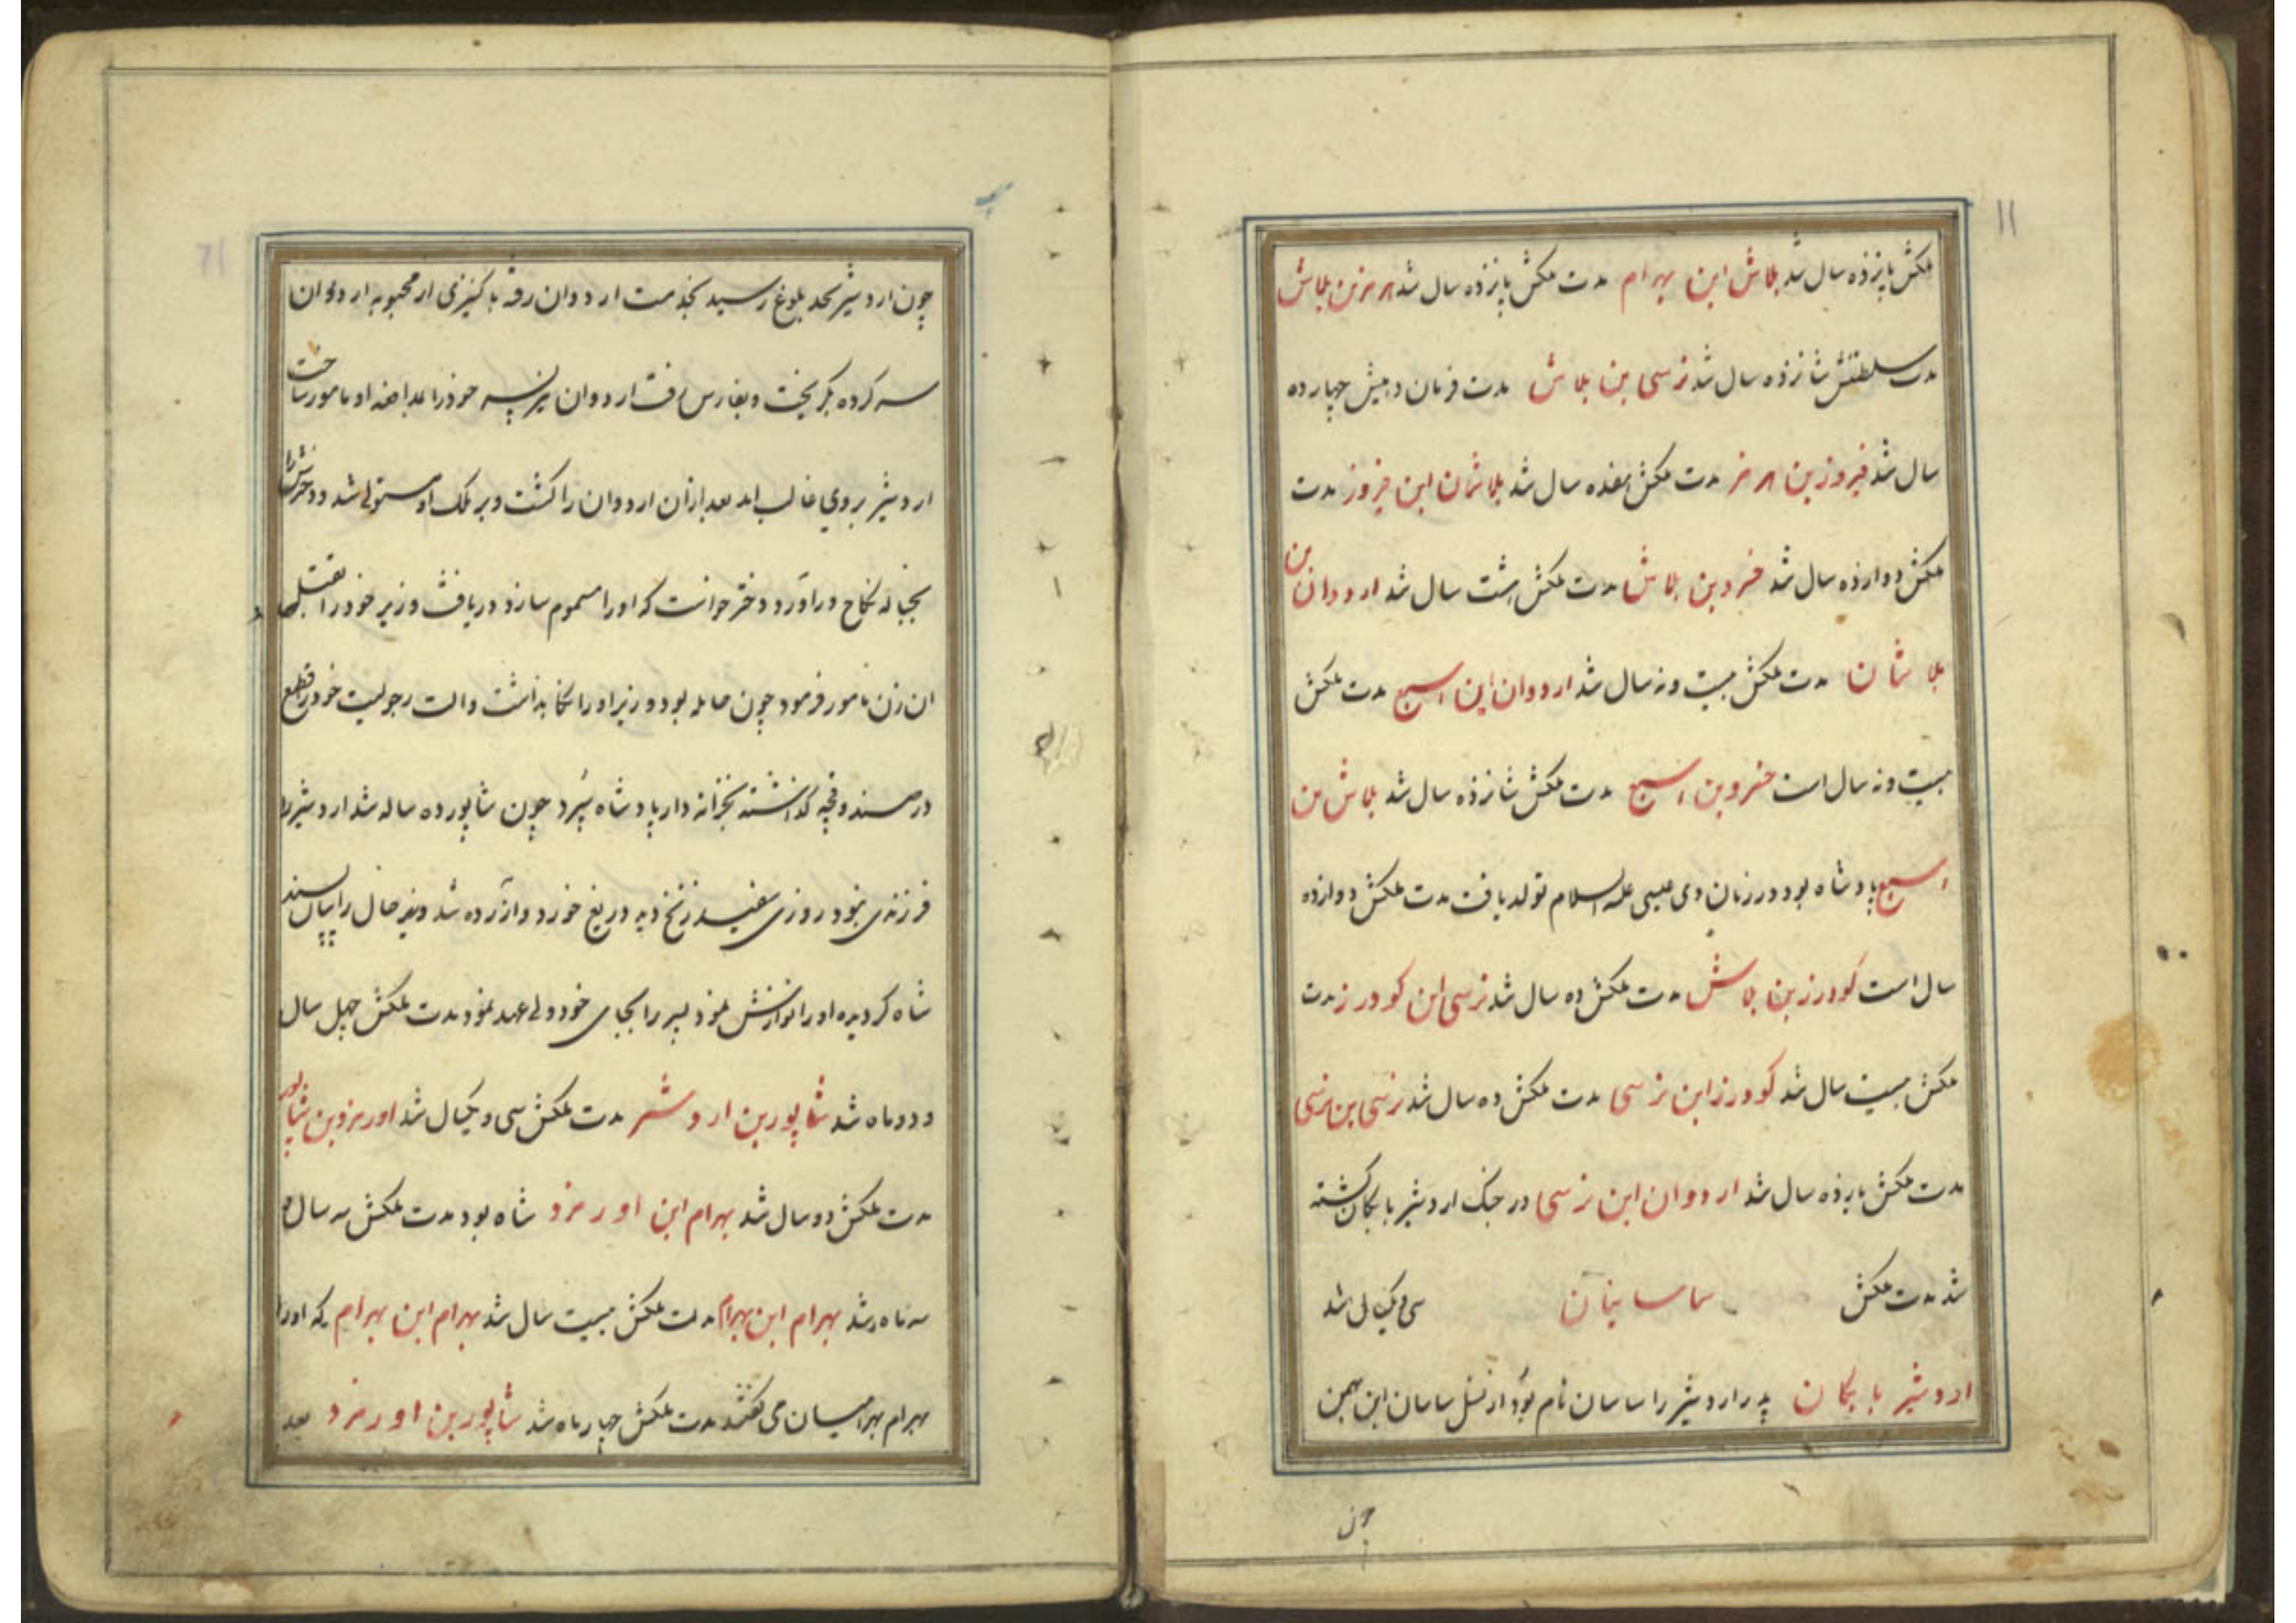 ۱۱
ملکش پانزده سال شد بلاش ابن بهرام مدت ملکش پانزده سال شد هرمز بن بلاش
مدت سلطنتش شانزده سال شد نرسی بن بلاش مدت فرمان دهیش چهارده
سال شد فیروز بن هرمز مدت ملکش هفده سال شد بلاشان ابن فیروز مدت
ملکش دوازده سال شد خسرو بن بلاش مدت ملکش هشت سال شد اردوان بن
بلاشان مدت ملکش بیست و نه سال شد اردوان ابن اسبع مدت ملکش
بیست و نه سال است خسرو بن اسبع مدت ملکش شانزده سال شد بلاش بن
اسبع پادشاه بود در زمان وی عیسی علیه السلام تولد یافت مدت ملکش دوازده
سال است کودرز بن بلاش مدت ملکش ده سال شد نرسی ابن کودرز مدت
ملکش بیست سال شد کودرز ابن نرسی مدت ملکش ده سال شد نرسی بن نرسی
مدت ملکش یازده سال شد اردوان ابن نرسی در جنک اردشیر بابکان کشته
شد مدت ملکش ساسانیان سی و یکسال شد
اردشیر بابکان پدر اردشیر را ساسان نام بود از نسل ساسان ابن بهمن
چون
چون اردشیر بحد بلوغ رسید بخدمت اردوان رفته با کنیزی از محبوبه اردوان
سر کرده بکریخت و بفارس رفت اردوان نیز پسر خود را باخذ او مامور ساخت
اردشیر بر وی غالب امد بعد ازان اردوان را کشت و بر ملک او مستولی شد و دخترش را
بحباله نکاح در آورد دختر خواست که او را مسموم سازد دریافت وزیر خود را بقتل
ان زن مامور فرمود چون حامله بود وزیر او را نکاه بداشت و الت رجولیت خود را قطع
در صندوقچه کذاشته بخزانه دار پادشاه سپرد چون شاپور ده ساله شد اردشیر را
فرزندی نبود روزی سفید زنخ دید دریغ خورد و ازرده شد وزیر حال را بیان
شاه کردیده او را نوازش نمود پسر را بجای خود ولی عهد نمود مدت ملکش چهل سال
و دو ماه شد شاپور بن اردشیر مدت ملکش سی و یکسال شد اورمزد بن شاپور
مدت ملکش دو سال شد بهرام ابن اورمزد شاه بود مدت ملکش سه سال و
سه ماه شد بهرام ابن بهرام مدت ملکش بیست سال شد بهرام ابن بهرام که او را
بهرام بهرامیان می کفتند مدت ملکش چهار ماه شد شاپور بن اورمزد بعد